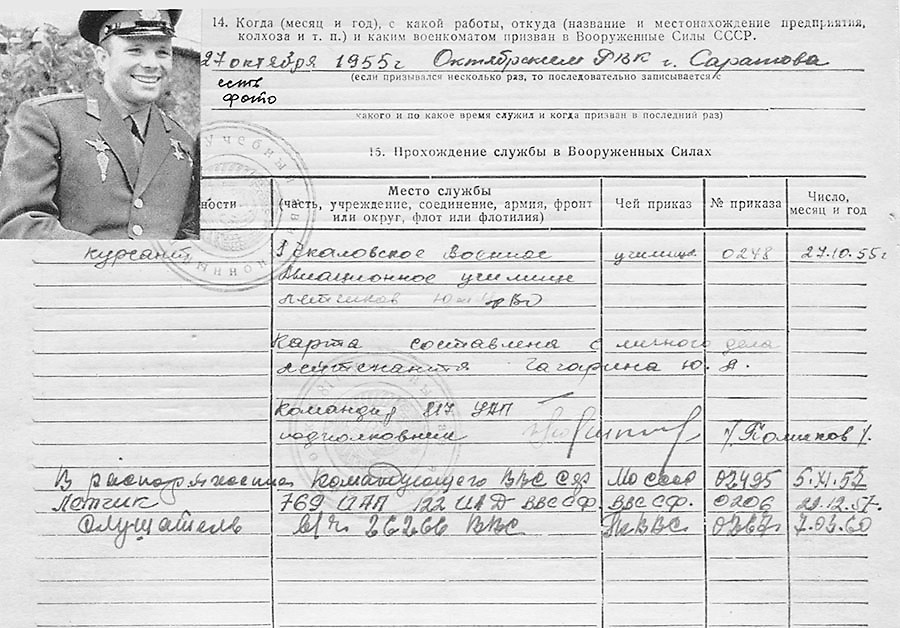 14. Когда (месяц и год), с какой работы, откуда (название и местонахождение предприятия,
колхоза и т. п.) и каким военкоматом призван в Вооруженные Силы СССР.
27 октября 1955 г Октябрьским РВК г. Саратова
(если призывался несколько раз, то последовательно записывается с
есть
фото
какого и по какое время служил и когда призван в последний раз)
15. Прохождение службы в Вооруженных Силах
ности
Место службы
(часть, учреждение, соединение, армия, фронт
или округ, флот или флотилия)
Чей приказ
№ приказа
Число,
месяц и год
курсант 1 Чкаловское Военное училища 0248 27.10.55г
Авиационное училище
летчиков
Карта составлена с личного дела
лейтенанта Гагарина Ю. А.
Командир УАП
подполковник
В распоряжении Командующего ВВС СФ 02495 5.XI.57
Летчик 769 ИАП 122 ИАД ВВС СФ. ВВС СФ. 0206 29.12.57.
Слушатель в/ч. 26266 ВВС 0267 7.03.60